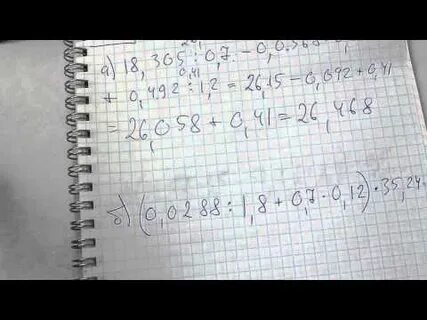 а) 18,305 : 0,7 - 0,0368
0,41
+ 0,492 : 1,2 = 26,15 - 0,092 + 0,41
= 26,058 + 0,41 = 26,468
б) (0,0288 : 1,8 + 0,7 · 0,12) · 35,24